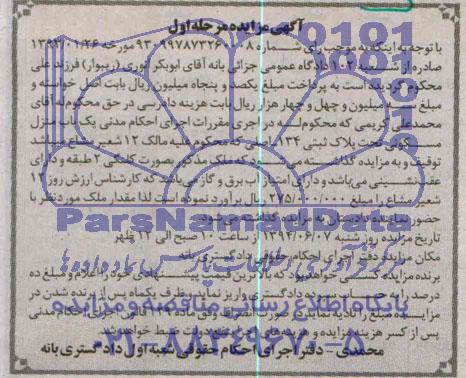 آگهی مزایده مرحله اول
با توجه به اینکه به موجب رای شماره 9309978732600108 مورخه 1394/01/26
صادره از شعبه 102 دادگاه عمومی جزائی بانه آقای ابوبکر انوری (ریبوار) فرزند علی
محکوم گردیده است به پرداخت مبلغ یکصد و پنجاه میلیون ریال بابت اصل خواسته و
مبلغ سه میلیون و چهل و چهار هزار ریال بابت هزینه دادرسی در حق محکوم له آقای
محمدعلی کریمی که محکوم له در اجرای مقررات اجرای احکام مدنی یک باب منزل
مسکونی تحت پلاک ثبتی 134 اصلی که محکوم علیه مالک 12 شعیر مشاع میباشد
توقیف و به مزایده گذاشته میشود که ملک مذکور بصورت کلنگی 2 طبقه و دارای
عقب نشینی می باشد و دارای امتیاز آب برق و گاز می باشد که کارشناس ارزش روز 12
شعیر مشاع را مبلغ 275/000/000 ریال برآورد نموده است لذا مقدار ملک مورد نظر با
حضور نماینده دادستان به مزایده گذاشته می شود.
تاریخ مزایده روز شنبه 1394/06/07 از ساعت 10 صبح الی 12 ظهر
مکان مزایده دفتر اجرای احکام حقوقی دادگستری بانه
برنده مزایده کسی خواهد بود که بالاترین قیمت پیشنهادی خود را اعلام و مبلغ ده
درصد را به حساب سپرده دادگستری واریز نماید و ظرف یکماه پس از برنده شدن در
مزایده مبلغ را تادیه نماید در صورت انصراف وفق ماده 129 قانون اجرای احکام مدنی
پس از کسر هزینه مزایده و هزینه های اجرا به نفع دولت ضبط خواهد شد.
محمدی - دفتر اجرای احکام حقوقی شعبه اول دادگستری بانه
ParsNamadData
پایگاه اطلاع رسانی مناقصه و مزایده
021-88349670-5